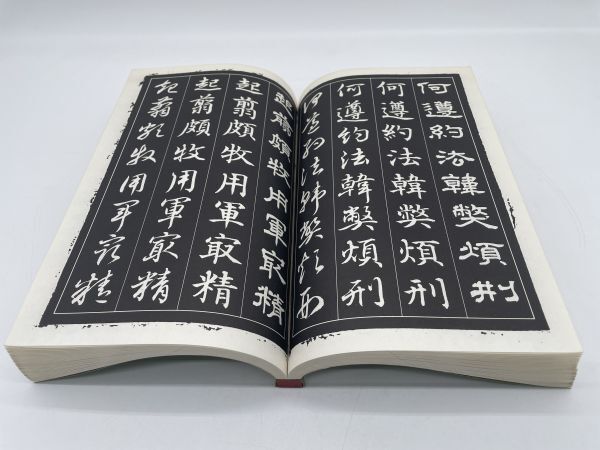 何遵約法韓弊煩刑
何遵約法韓弊煩刑
何遵約法韓弊煩刑
何遵約法韓弊煩刑
起翦頗牧用軍冣精
起翦頗牧用軍冣精
起翦頗牧用軍冣精
起翦頗牧用軍冣精